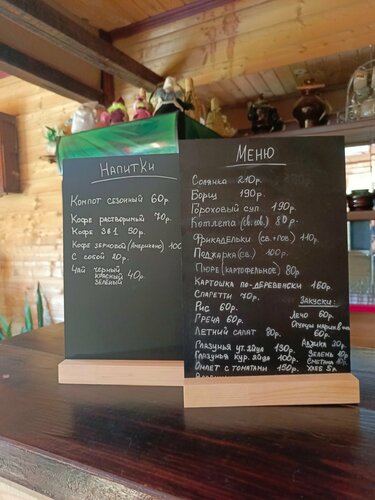 Напитки
Компот сезонный 60р.
Кофе растворимый 70р.
Кофе 3в1 50р.
Кофе зерновой (Американо) 100
С собой 10р.
Чай черный
красный 40р.
зелёный
Меню
Солянка 210р.
Борщ 190р.
Гороховый суп 190р.
Котлета (св.гов.) 80р.
Фрикадельки (св.+гов.) 110р.
Поджарка (св.) 100р.
Пюре (картофельное) 80р
Картошка по-деревенски 160р.
Спагетти 70р.
Рис 60р.
Греча 60р.
Летний салат 80р.
Глазунья ут. яйца 130р.
Глазунья кур. яйцо 100р.
Омлет с томатами 150р.
Закуски:
Лечо 60р.
Огурцы марин.
60р.
Аджика 20р
Зелень 10р
Сметана 10р
Хлеб 5р